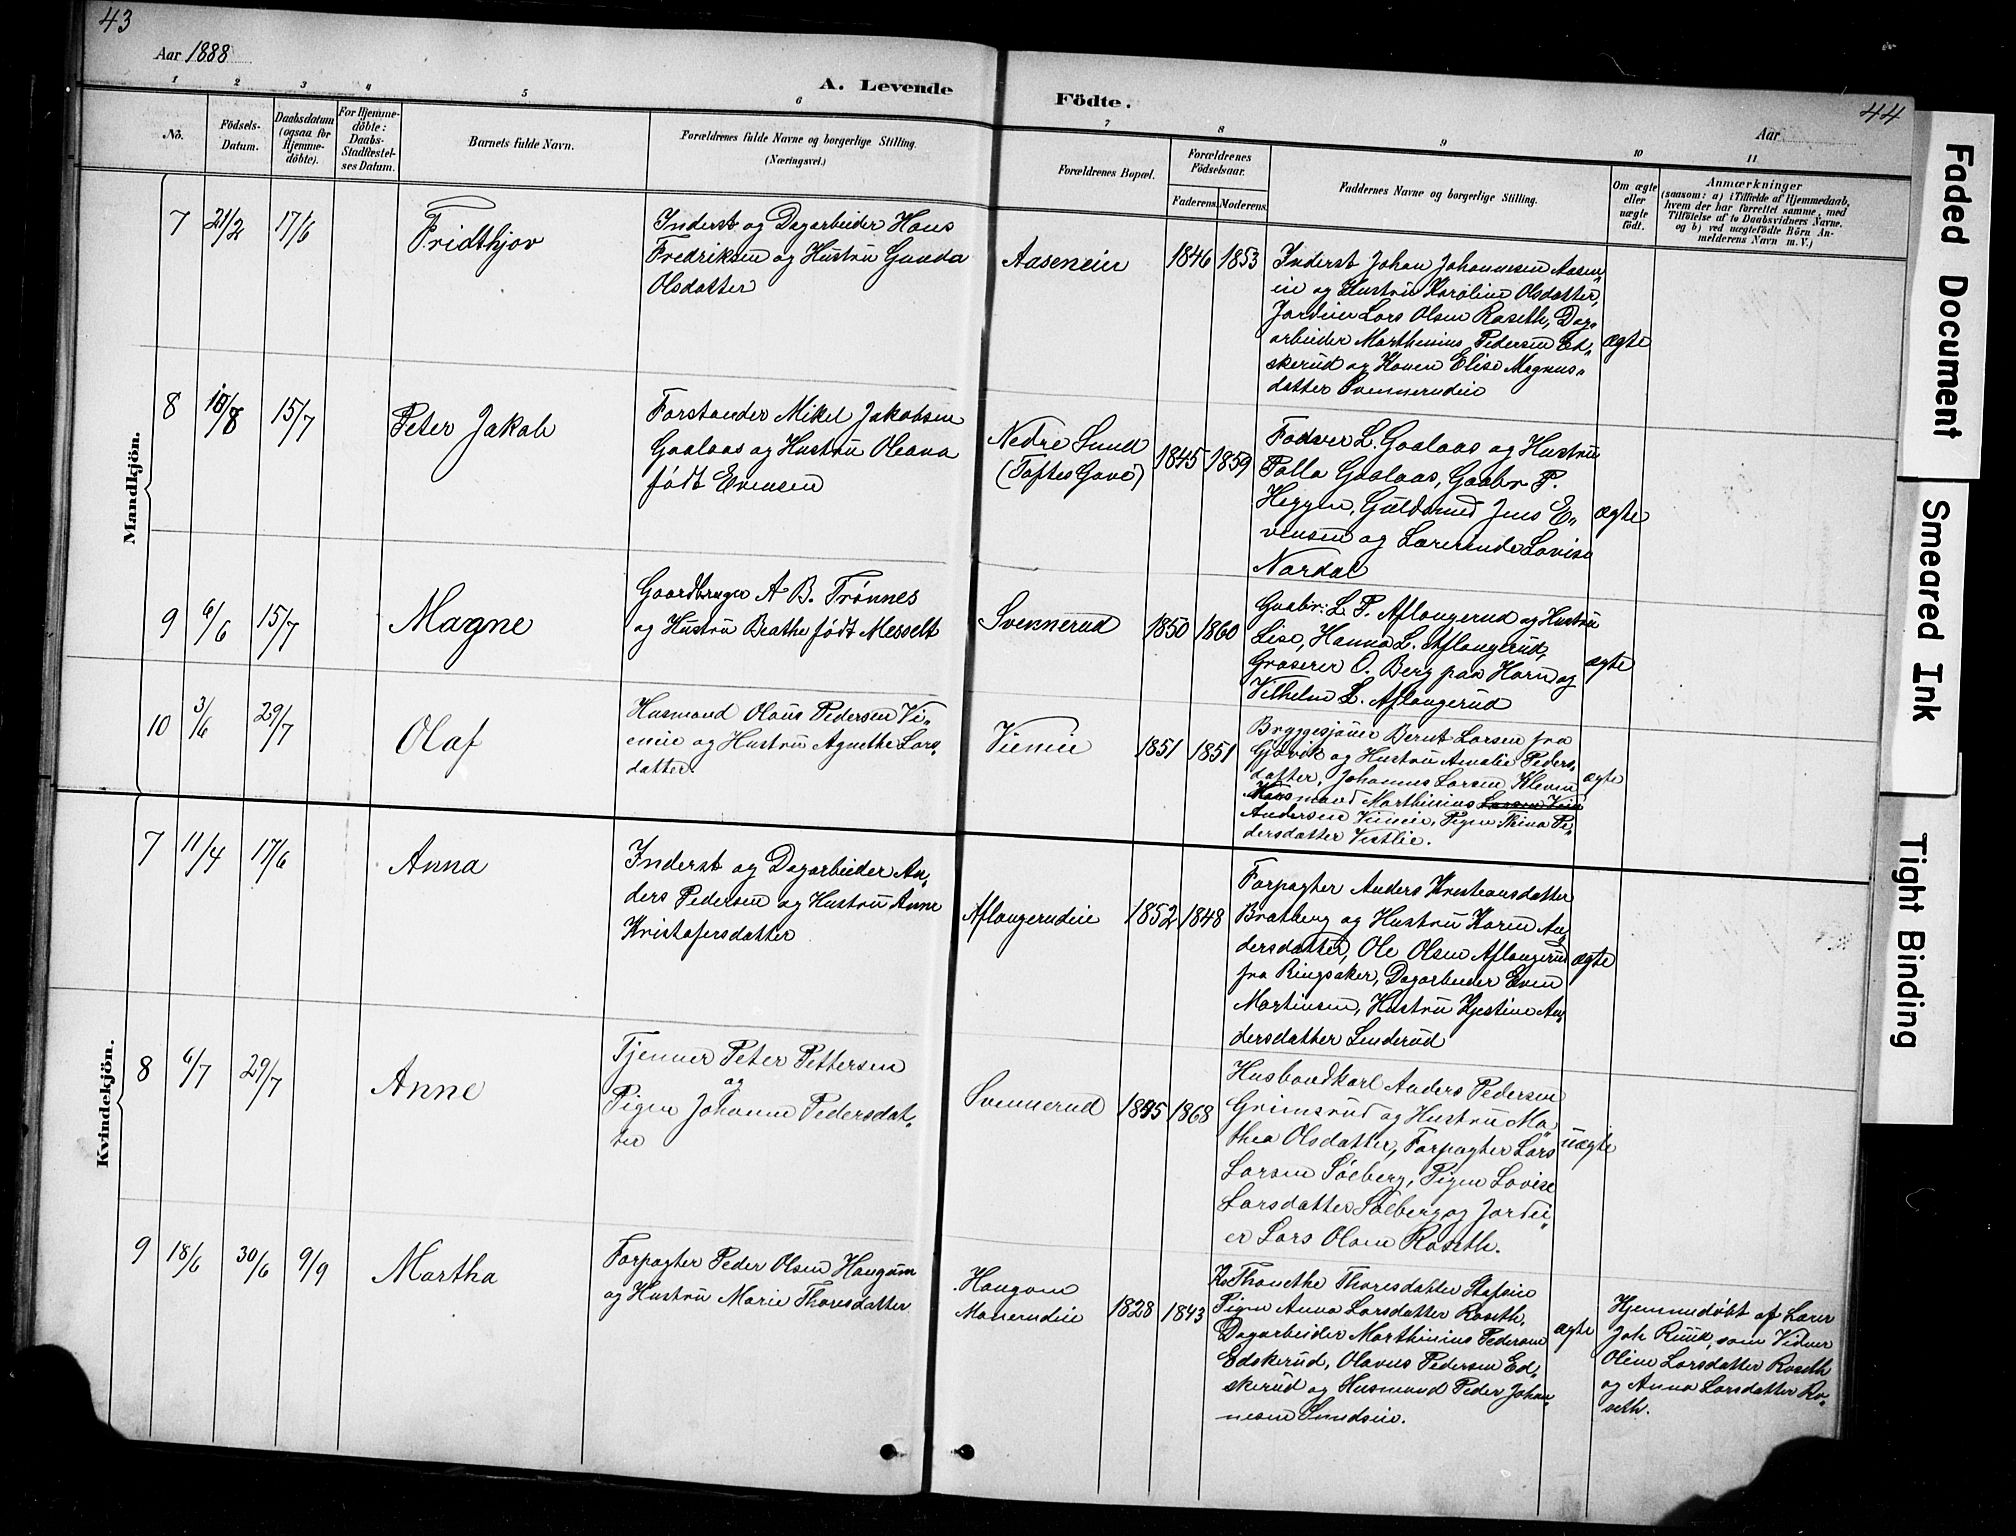 43
Aar 1888
A. Levende
Födte.
Aar
44
1
2
3
4
5
6
7
8
9
10
11
No.
Födsels-
Datum.
Daabsdatum
(ogsaa for
Hjemme-
döbte).
For Hjemme-
döbte:
Daabs-
Stadfæstel-
ses Datum.
Barnets fulde Navn.
Forældrenes fulde Navne og borgerlige Stilling.
(Næringsvei.)
Forældrenes Bopæl.
Forældrenes
Födselsaar.
Faderens.
Moderens.
Faddernes Navne og borgerlige Stilling.
Om ægte
eller
uægte
födt.
Anmærkninger
(saasom: a) i Tilfælde af Hjemmedaab,
hvem der har forrettet samme, med
Tilföielse af to Daabsvidners Navne.
og b) ved uægtefödte Börn An-
melderens Navn m. V.)
Mandkjön.
7 21/2 17/6
Fridthjov
Inderst og Dagarbeider Hans
Fredriksen og Hustru Gunda
Olsdatter
Aaseneie
1846 1853
Inderst Johan Johannesen Aasen„
eie og Hustru Karoline Olsdatter,
Jordeier Lars Olsen Roseth, Dag„
arbeider Marthinius Pedersen Ed„
skerud og Konen Elise Magnus„
datter Svennerudeie
ægte
8 18/8 15/7
Peter Jakob
Forstander Mikel Jakobsen
Gaalaas og Hustru Oleana
født Evensen
Nedre Sund
(Toftes Gave)
1845 1859
Fadver L. Gaalaas og Hustru
Palla Gaalaas, Gaabr. P.
Heggen, Guldsmed Jens E„
vensen og Lærerinde Lovise
Nordal
ægte
9 6/6 15/7
Magne
Gaardbruger A B. Trønnes
og Hustru Beathe født Messelt
Svennerud
1850 1860
Gaabr: L. P. Aflangerud og Hustru
Lise, Hanna L. Aflangerud,
Graserer O. Berg paa Horn og
Vilhelm L. Aflangerud
ægte
10 3/6 29/7
Olaf
Husmand Olaus Pedersen Vi„
eneie og Hustru Agnethe Lars„
datter.
Vieneie
1851 1851
Bryggesjouer Bernt Larsen fra
Gjøvik og Hustru Amalie Peders„
datter, Johannes Larsen Kleven
Husmand Marthinius Larsen Vien
Andersen Vieneie, Pigen Mina Pe„
dersdatter Vestlie.
ægte
Kvindekjön.
7 11/4 17/6
Anna
Inderst og Dagarbeider An„
ders Pedersen og Hustru Anne
Kristofersdatter
Aflangerudeie
1852 1848
Forpagter Anders Kristiansdatter
Bratberg og Hustru Karen An„
dersdatter, Ole Olsen Aflangerud
fra Ringsaker, Dagarbeider Even
Martinsen, Hustru Kjestine An„
dersdatter Linderud
ægte
8 6/7 29/7
Anne
Tjener Peter Pettersen
og
Pigen Johanne Pedersdat„
ter
Svennerud
1845 1868
Husbondkarl Anders Pedersen
Grimsrud og Hustru Ma„
thea Olsdatter, Forpagter Lars
Larsen Solberg, Pigen Lovise
Larsdatter Solberg og Jordei„
er Lars Olsen Roseth.
uægte
9 18/6 30/6 9/9
Martha
Forpagter Peder Olsen Haugom
og Hustru Marie Thoresdatter
Haugom
Monerudeie
1828 1843
Ko Thonethe Thoresdatter Stafseie
Pigen Anna Larsdatter Roseth,
Dagarbeider Marthinius Pedersen
Edskerud, Olavus Pedersen Ed„
skerud og Husmand Peder Johan„
nesen Sundseie.
ægte
Hjemmedøbt af Lærer
Joh Ruuk, som Vidner
Oline Larsdatter Roseth
og Anna Larsdatter Ro„
seth.
Faded Document
Smeared Ink
Tight Binding